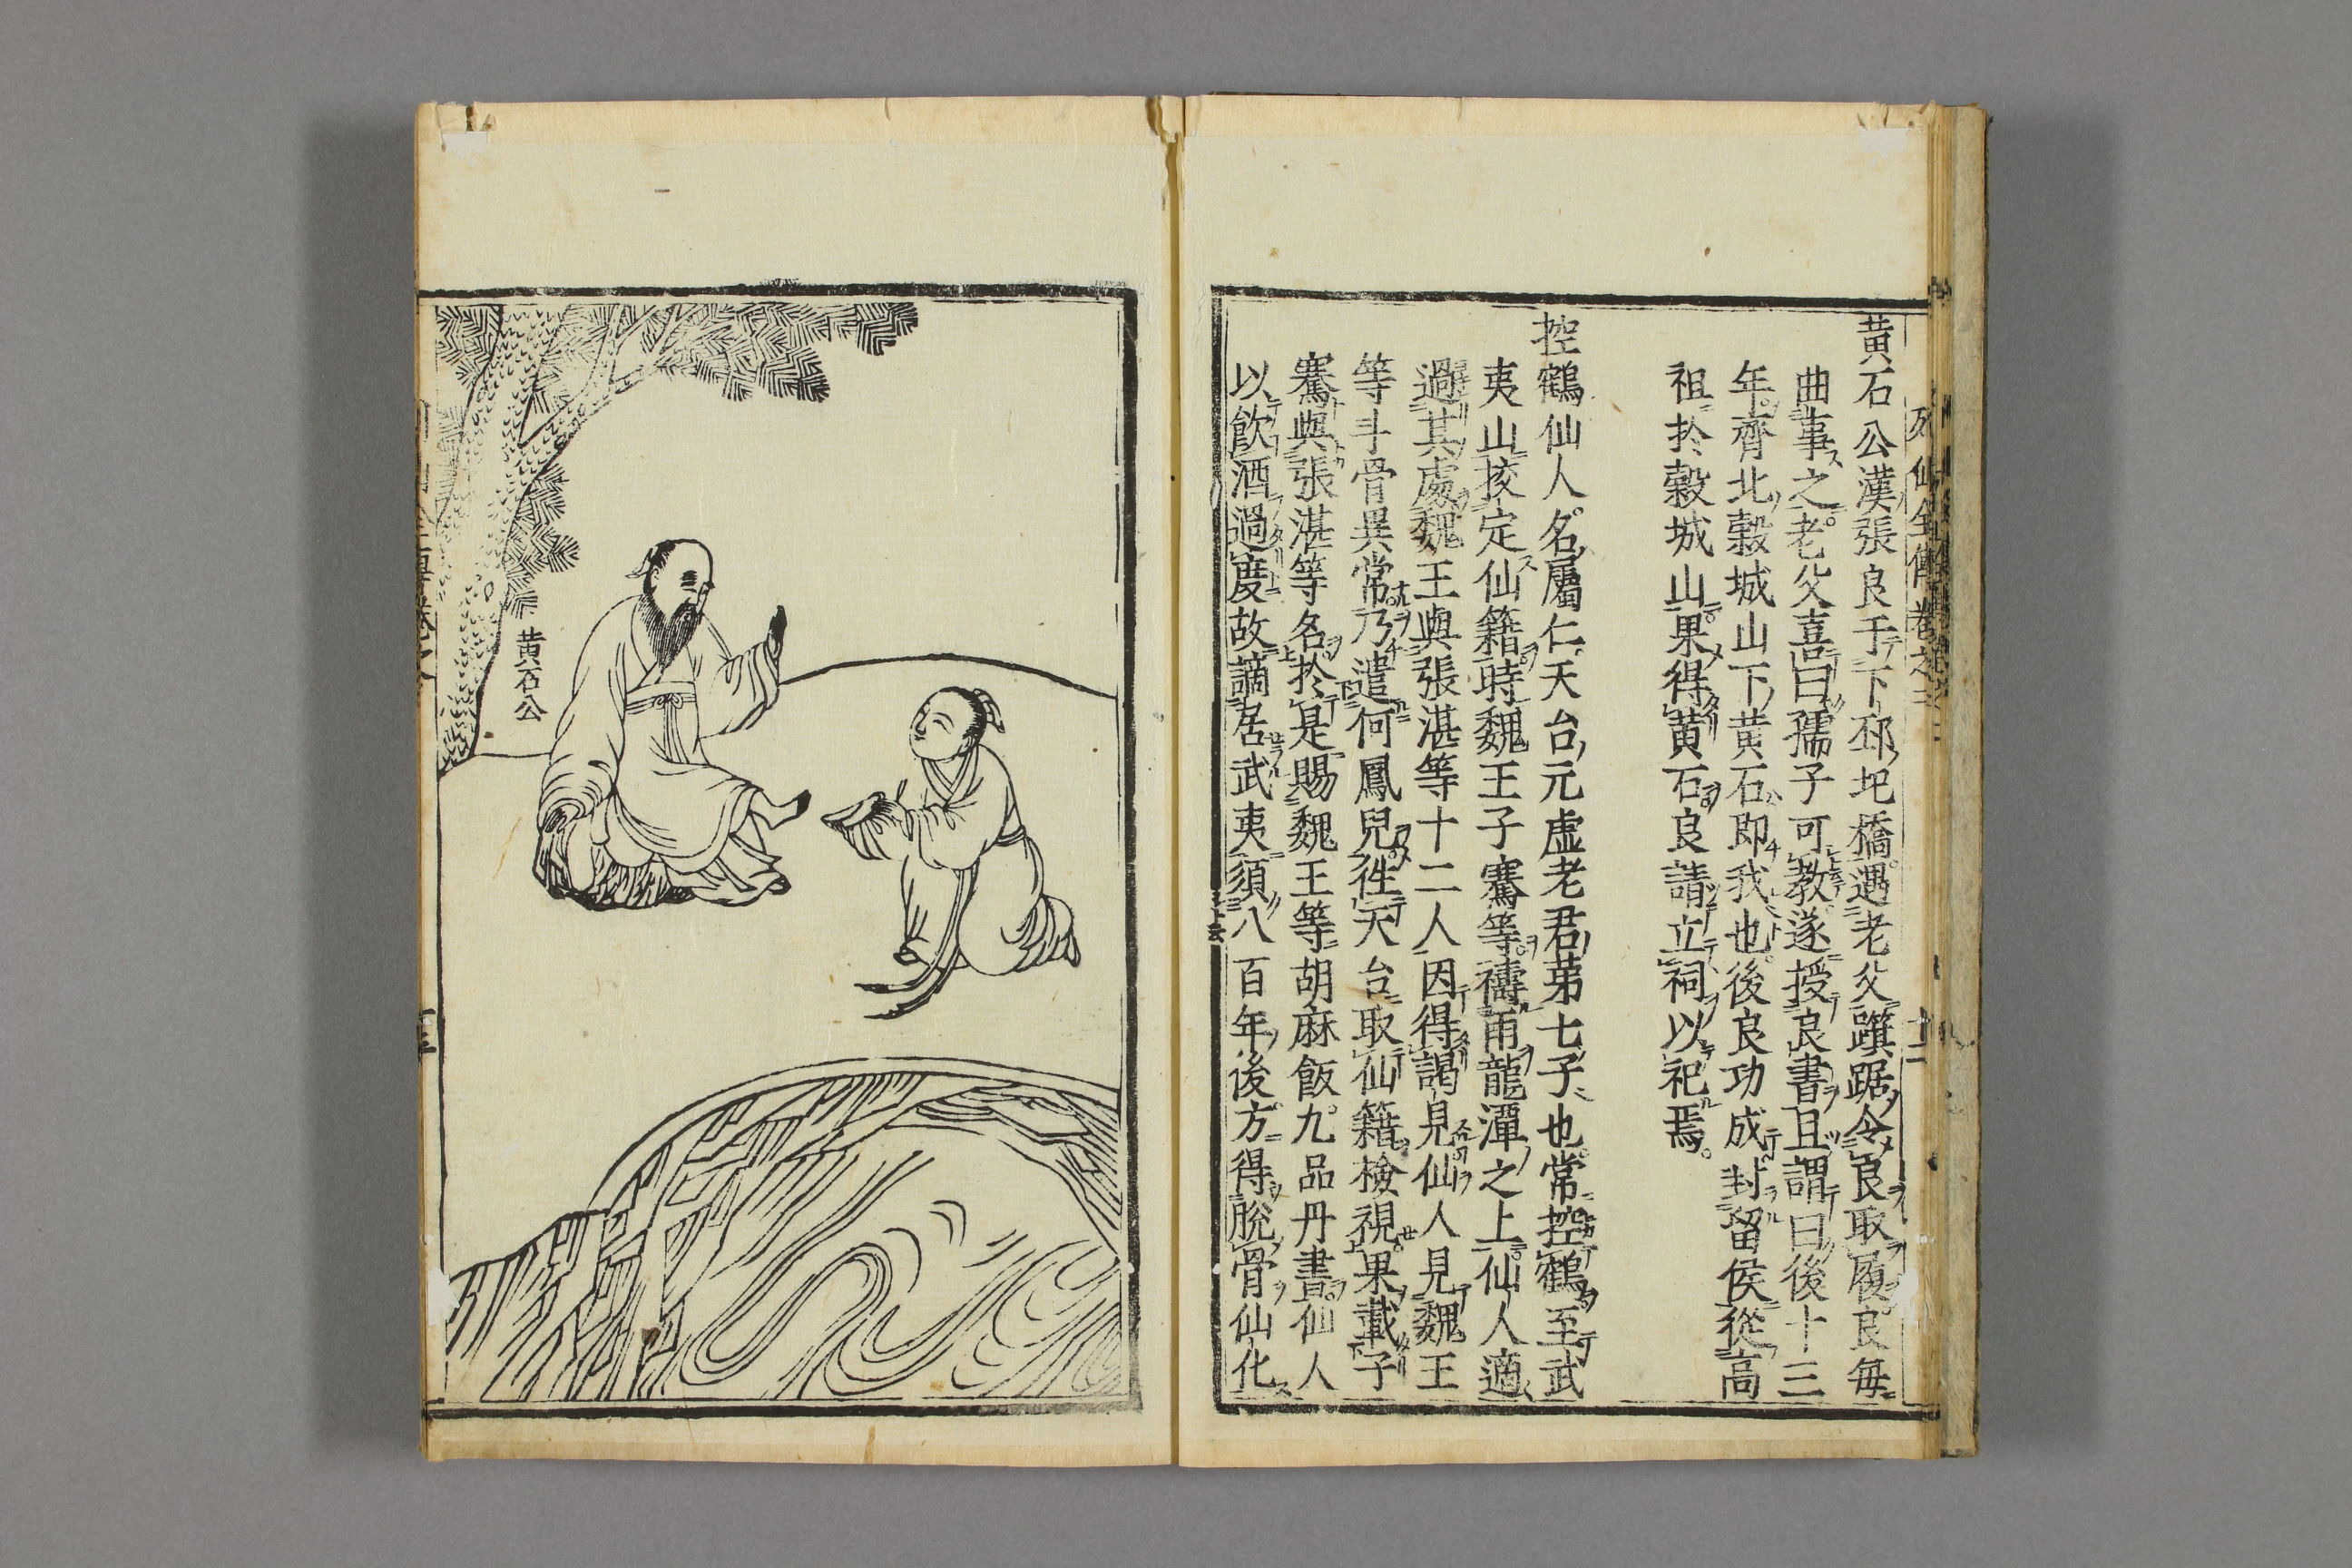 列仙全傳卷之二
黄石公漢張良于下邳圯橋遇老父蹲踞令良取履良毎
曲事之老父喜曰孺子可教遂授良書且謂曰後十三
年齊北穀城山下黄石即我也後良功成封留侯從高
祖於穀城山果得黄石良請立祠以祀焉
控鶴仙人名屬仁天台元虚老君第七子也常控鶴至武
夷山挍定仙籍時魏王子騫等禱雨龍潭之上仙人適
過其處魏王與張湛等十二人因得謁見仙人見魏王
等斗骨異常乃遣何鳳兒徃天台取仙籍檢視果載子
騫與張湛等名於是賜魏王等胡麻飯九品丹書仙人
以飲酒過度故謫居武夷須八百年後方得脫骨仙化
黄石公